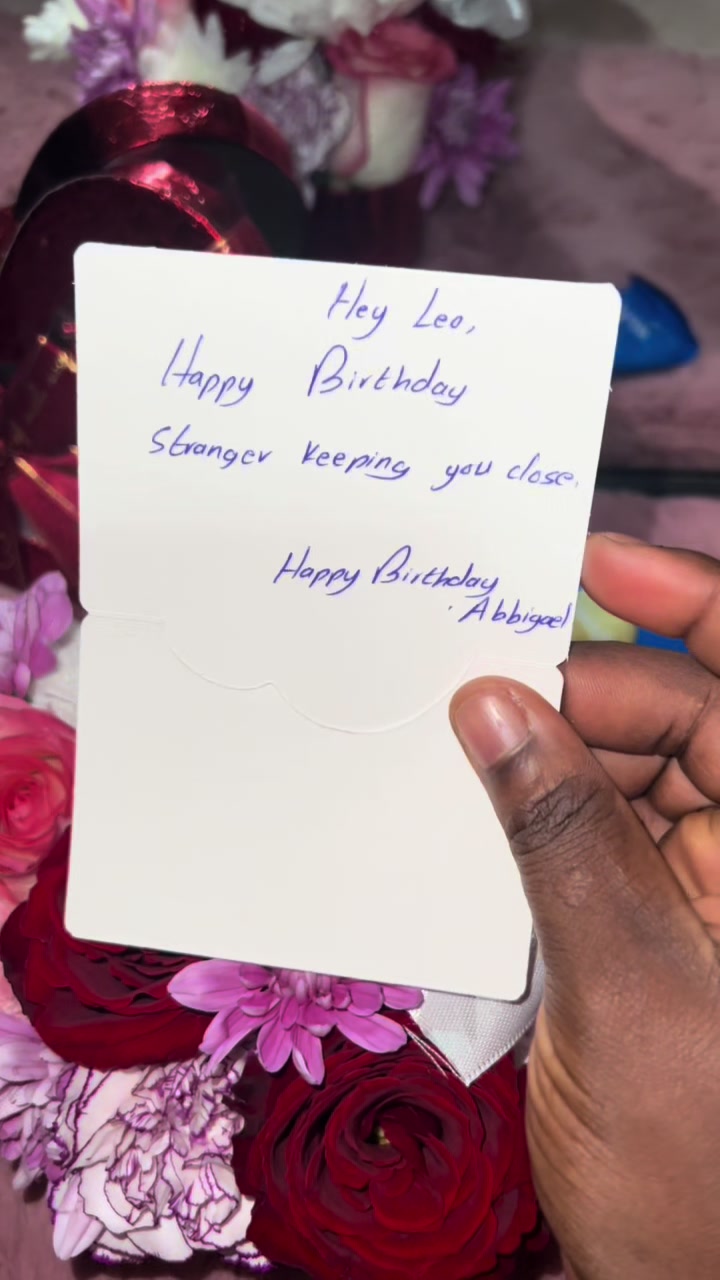 Hey Leo,
Happy Birthday
Stranger keeping you close.
Happy Birthday
. Abbigael